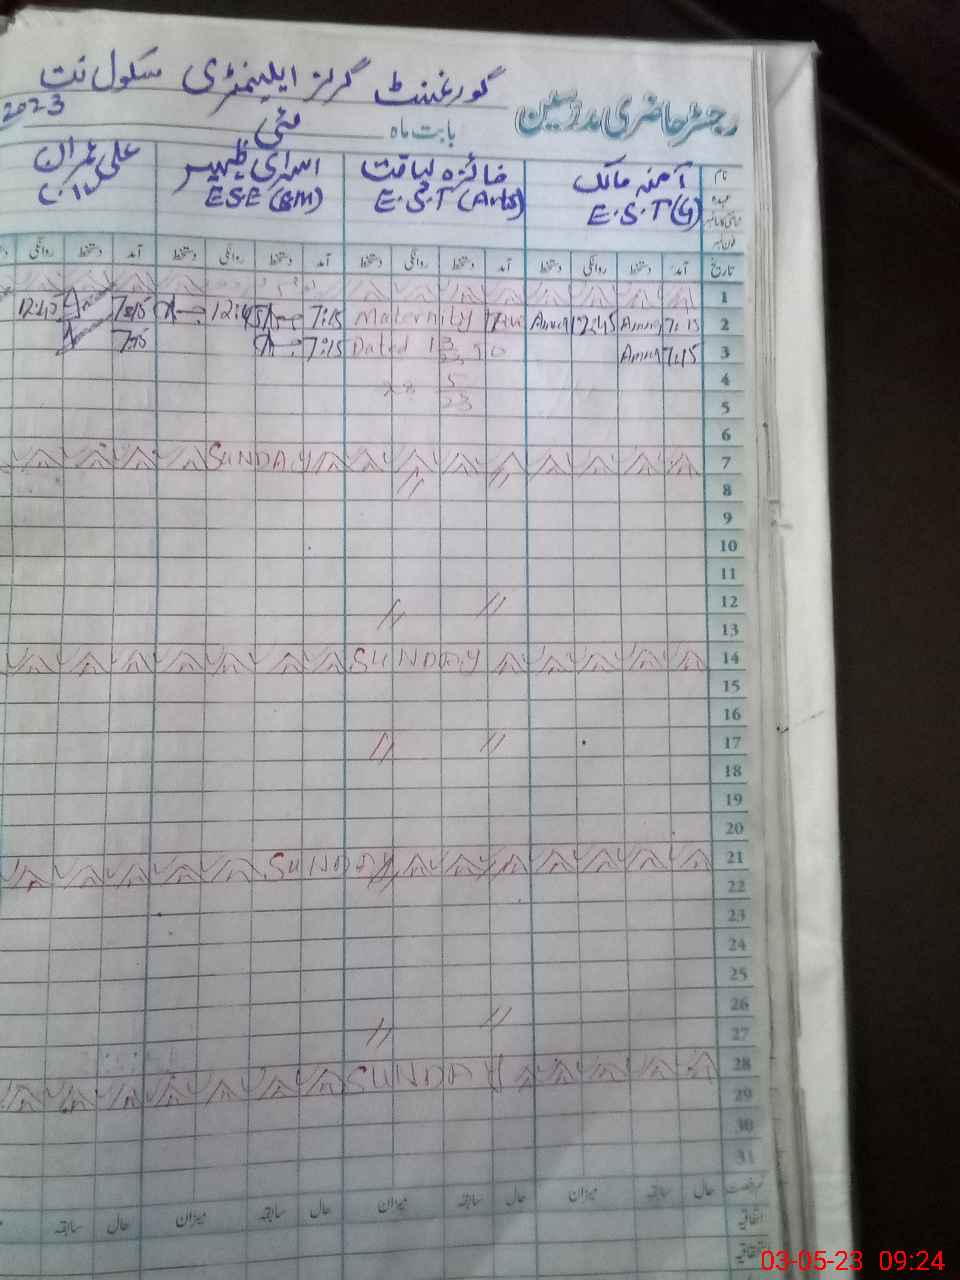 رجسٹر حاضری مدرسین گورنمنٹ گرلز ایلیمنٹری سکول نت
بابت ماہ مئی 2023
نام آمنہ مالک فائزہ لیاقت اسری علی عمران
عہدہ E.S.T(G) E.S.T (Arts) ESE (SM)
فون نمبر
تاریخ آمد دستخط روانگی دستخط آمد دستخط روانگی دستخط آمد دستخط روانگی دستخط آمد دستخط روانگی
1
2 7:15 Amna 12:45 Amna Maternity 7:15 12:45 7:15 12:45
3 7:15 Amna Dated 7:15 7:15
4 5
5 23
6
7 SUNDAY
8 // //
9
10
11
12 // //
13
14 SUNDAY
15
16
17 // //
18
19
20
21 SUNDAY
22
23
24
25
26 //
27 //
28 SUNDAY
29
30
31
حال سابقہ میزان حال سابقہ میزان حال سابقہ میزان حال سابقہ
اتفاقیہ
03-05-23 09:24